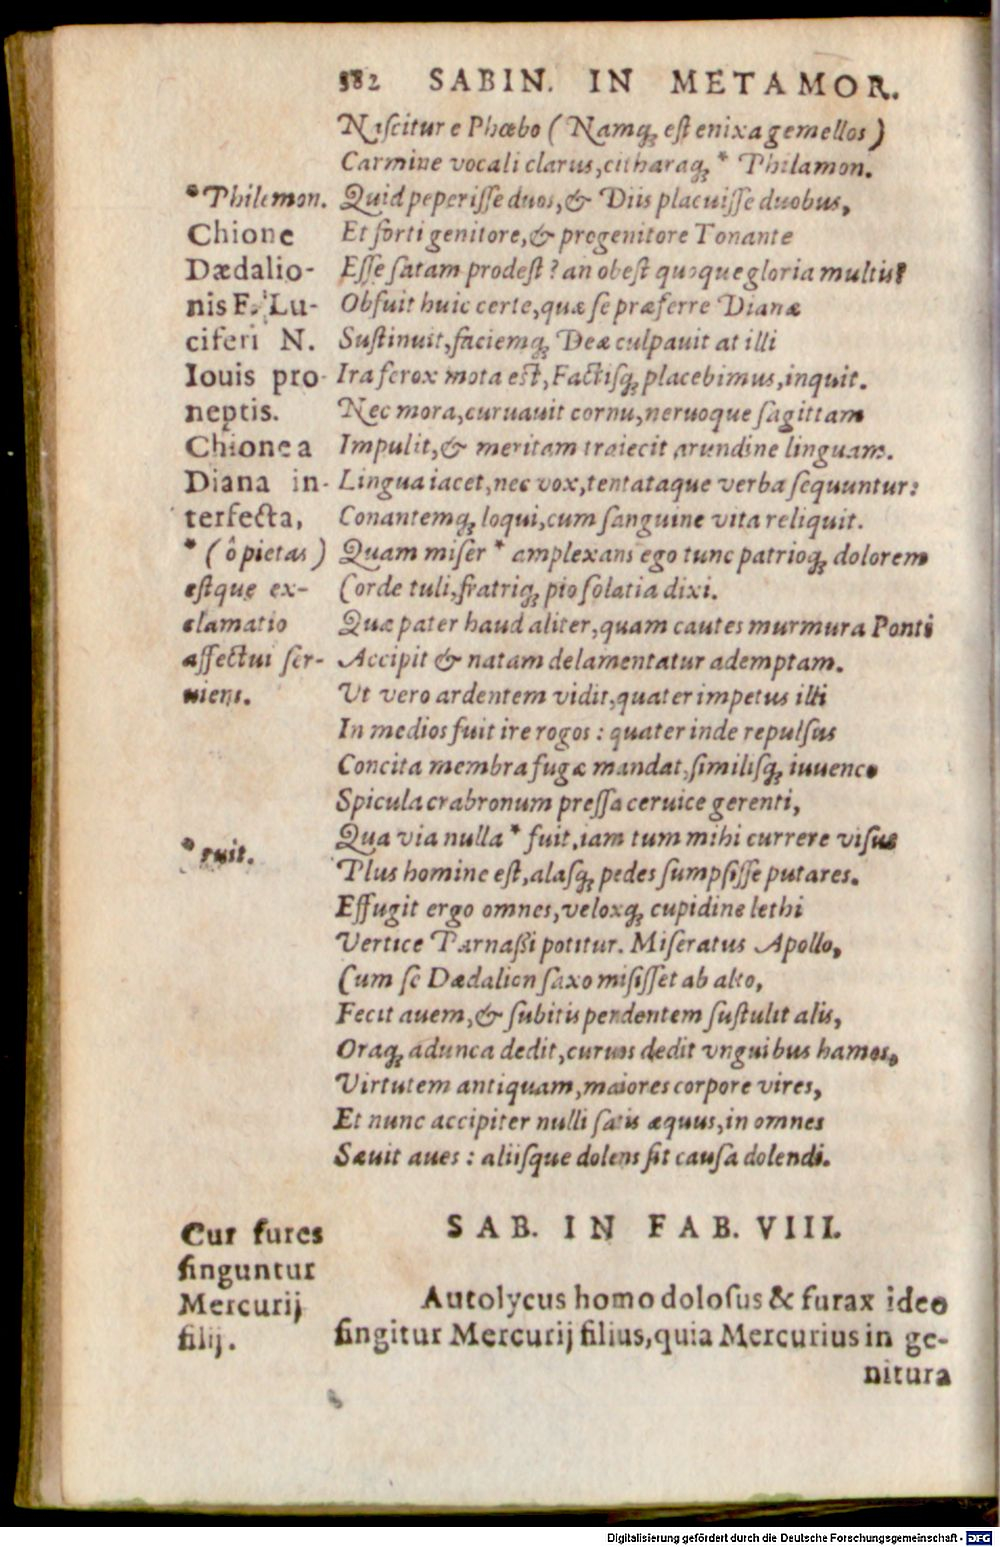 382 SABIN. IN METAMOR.
Naſcitur e Phœbo ( Namq́; eſt enixa gemellos )
Carmine vocali clarus, citharaq́; * Philamon.
Quid peperiſſe duos, & Diis placuiſſe duobus,
Et forti genitore, & progenitore Tonante
Eſſe ſatam prodeſt? an obeſt quoque gloria multis?
Obfuit huic certe, quæ ſe præferre Dianæ
Suſtinuit, faciemq́; Deæ culpauit at illi
Ira ferox mota eſt, Factiſq́; placebimus, inquit.
Nec mora, curuauit cornu, neruoque ſagittam
Impulit, & meritam traiecit arundine linguam.
Lingua iacet, nec vox, tentataque verba ſequuntur:
Conantemq́; loqui, cum ſanguine vita reliquit.
Quam miſer * amplexans ego tunc patrioq́; dolorem
Corde tuli, fratriq́; pio ſolatia dixi.
Quæ pater haud aliter, quam cautes murmura Ponti
Accipit & natam delamentatur ademptam.
Vt vero ardentem vidit, quater impetus illi
In medios fuit ire rogos : quater inde repulſus
Concita membra fugæ mandat, ſimiliſq́; iuuenco
Spicula crabronum preſſa ceruice gerenti,
Qua via nulla * fuit, iam tum mihi currere viſus
Plus homine eſt, alaſq́; pedes ſumpſiſſe putares.
Effugit ergo omnes, veloxq́; cupidine lethi
Vertice Parnaßi potitur. Miſeratus Apollo,
Cum ſe Dædalion ſaxo miſiſſet ab alto,
Fecit auem, & ſubitis pendentem ſuſtulit alis,
Oraq́; adunca dedit, curuos dedit vnguibus hamos,
Virtutem antiquam, maiores corpore vires,
Et nunc accipiter nulli ſatis æquus, in omnes
Sæuit aues : aliiſque dolens fit cauſa dolendi.
*Philemon.
Chione
Dædalio-
nis F. Lu-
ciferi N.
Iouis pro-
neptis.
Chione a
Diana in-
terfecta,
* (ô pietas)
eſtque ex-
clamatio
affectui ſer-
uiens.
* ruit.
SAB. IN FAB. VIII.
Autolycus homo doloſus & furax ideo
fingitur Mercurij filius, quia Mercurius in ge-
nitura
Cur fures
finguntur
Mercurij
filij.
Digitalisierung gefördert durch die Deutsche Forschungsgemeinschaft - DFG